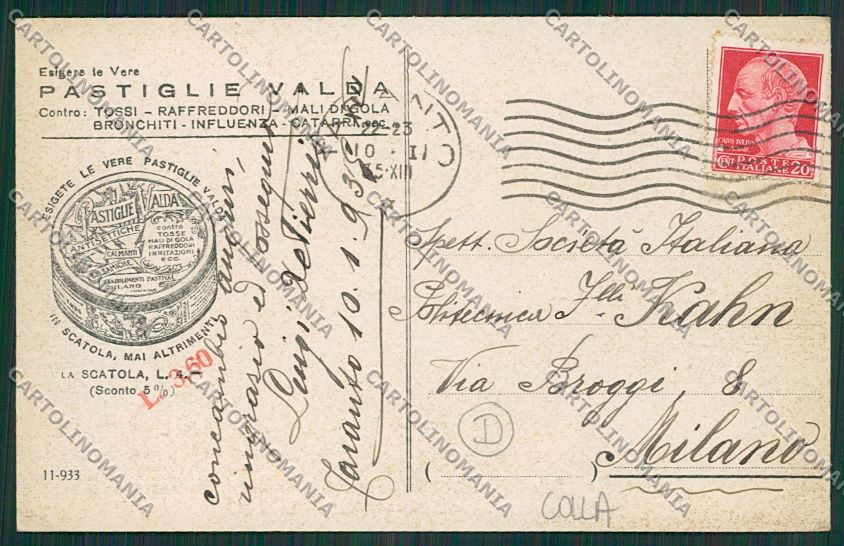 Esigere le Vere
PASTIGLIE VALDA
Contro: TOSSI - RAFFREDDORI - MALI DI GOLA
BRONCHITI - INFLUENZA - CATARRI, ecc.
ESIGETE LE VERE PASTIGLIE VALDA
PASTIGLIE VALDA
ANTISETTICHE
CALMANTI
BALSAMICHE
contro
TOSSE
MALI DI GOLA
RAFFREDDORI
IRRITAZIONI
ECC.
MILANO
IN SCATOLA, MAI ALTRIMENTI
LA SCATOLA, L. 4.—
(Sconto 5%)
L. 3,60
11-933
concambio auguri
ringrazio ed ossequio
Luigi
Taranto 10.1.935
22-23
10 · I
35·XIII
POSTE
ITALIANE
CENT
20
Spett. Società Italiana
Politecnica F.lli Kahn
Via Broggi, 8
Milano
D
COLLA
CARTOLINOMANIA